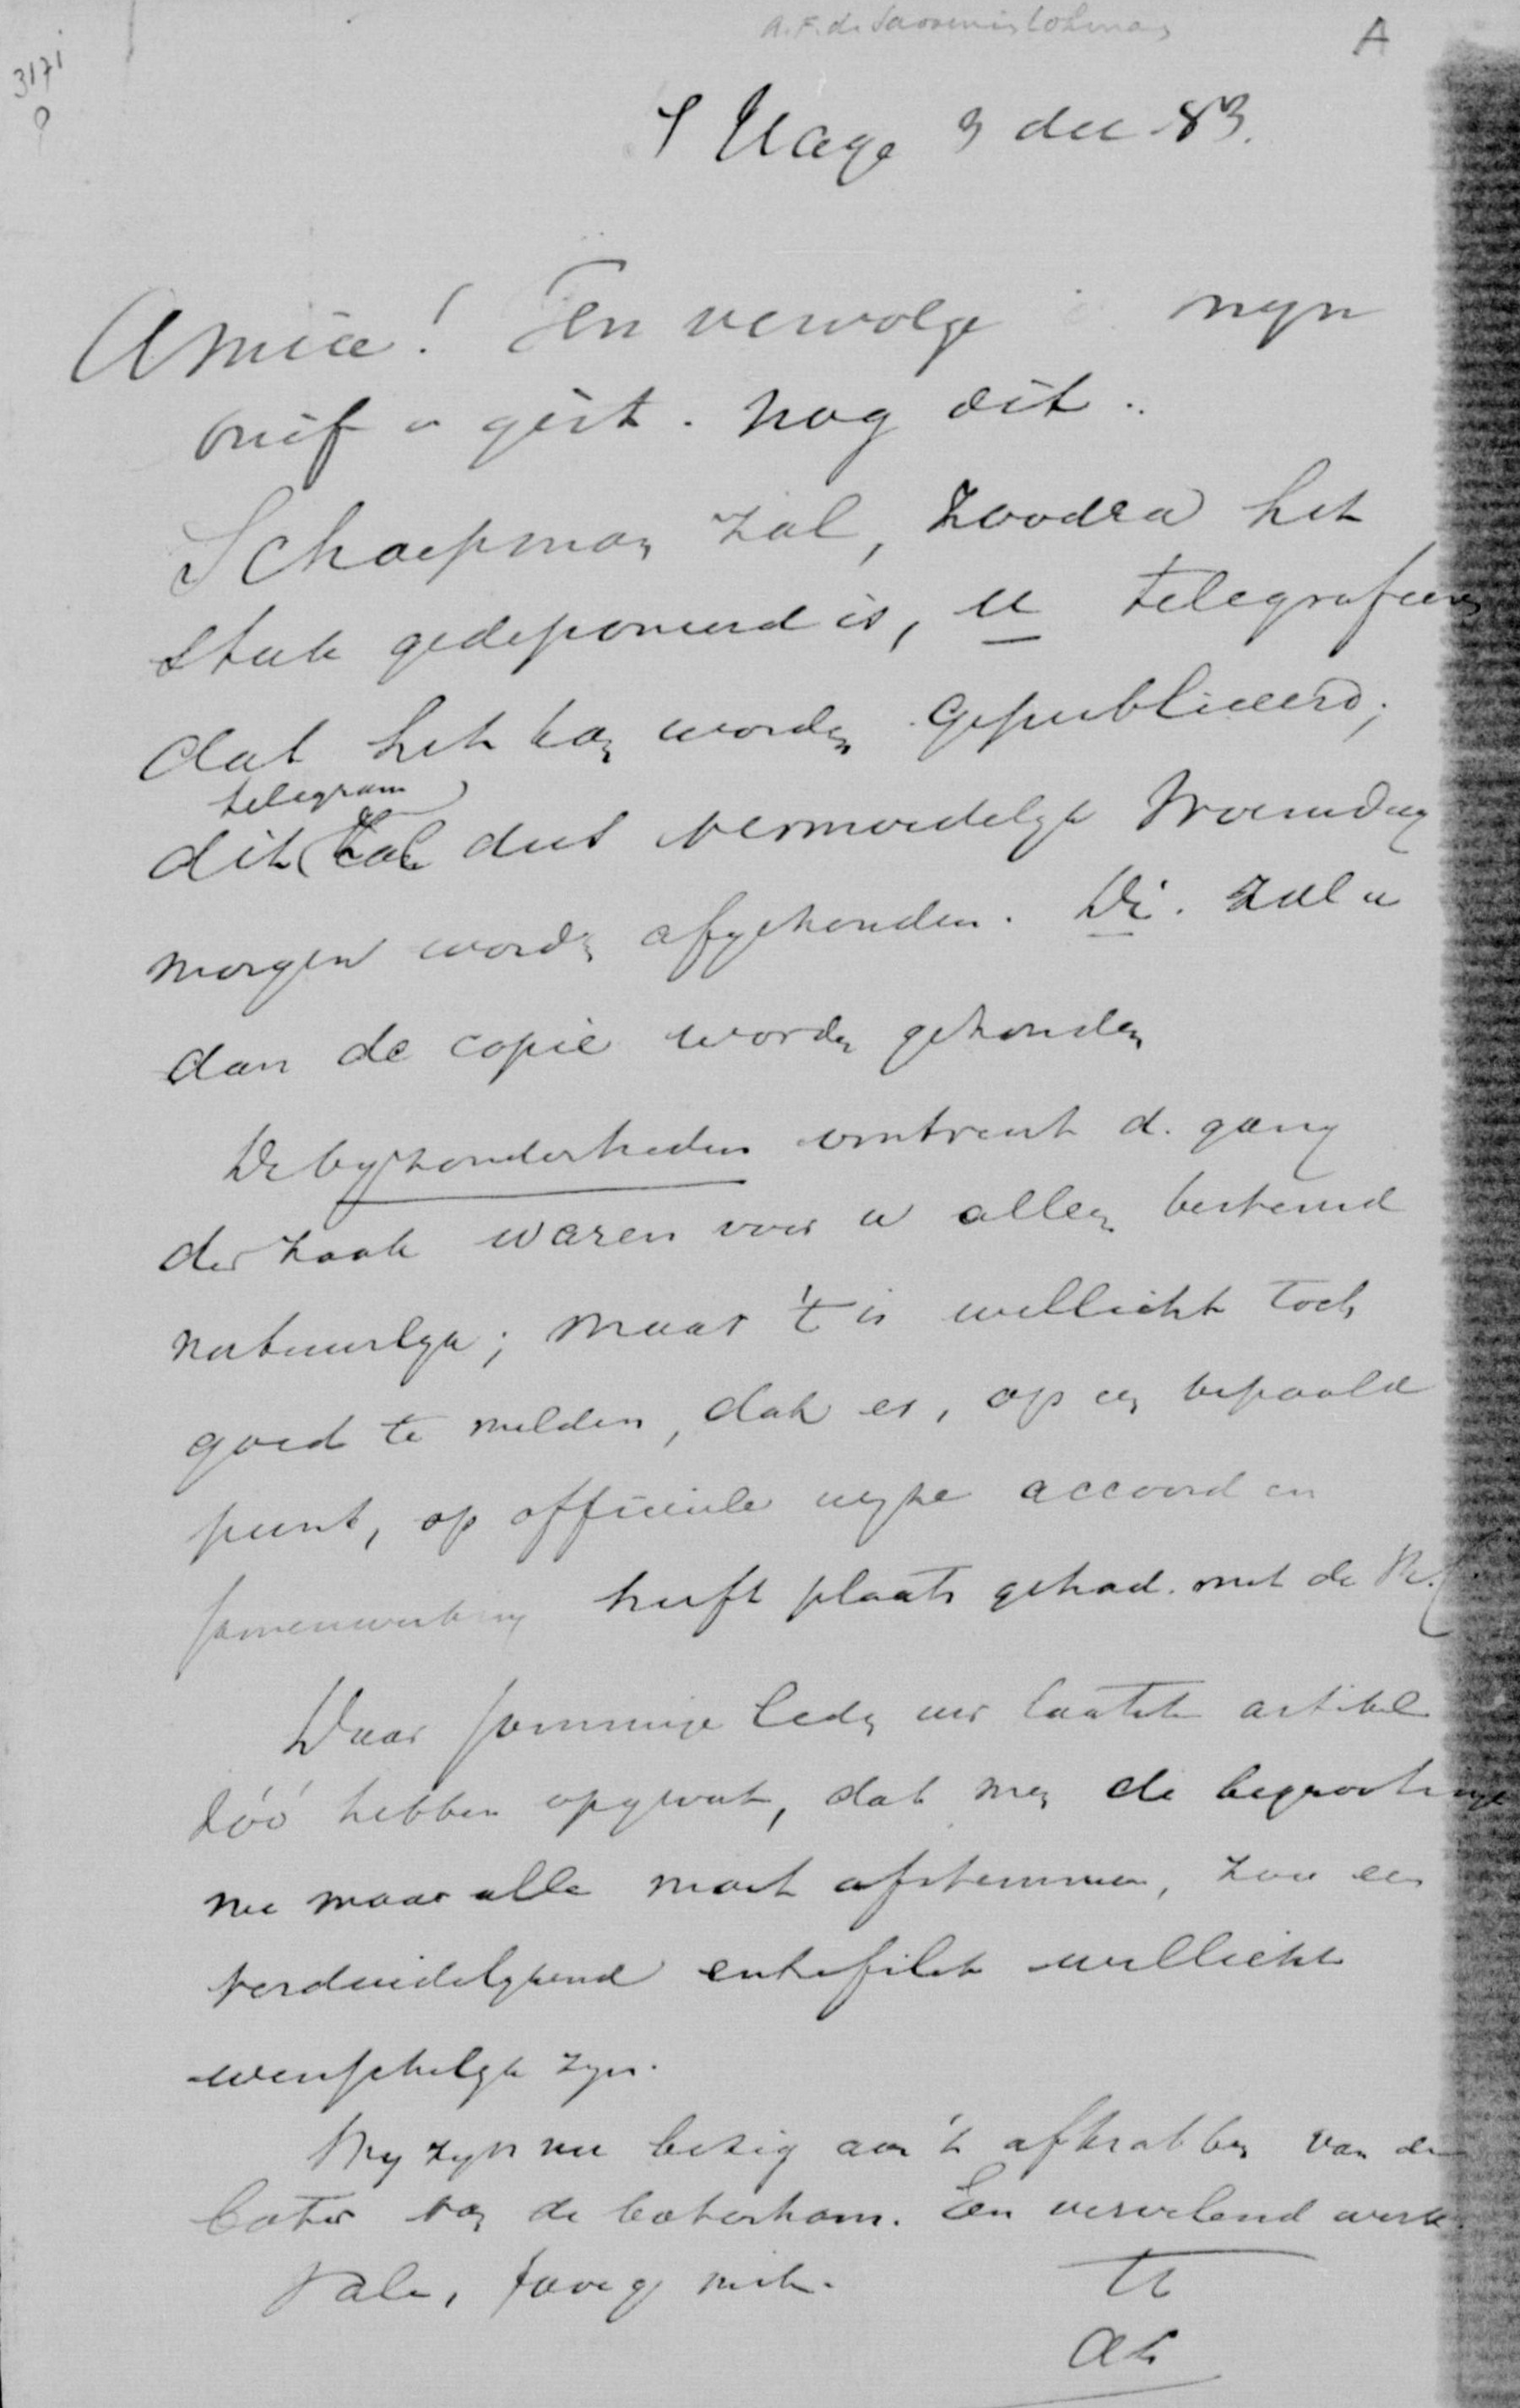 A.F. de Savornin Lohman
A
3171
'S Hage 3 dec 83.
Amice! Ten vervolge mijn
brief v gist. nog dit.
Schaepman zal, zoodra het
stuk gedeponeerd is, u telegrafeeren
dat het kan worden gepubliceerd;
telegram
dit zal dus vermoedelijk Woensdag
morgen worden afgezonden. Di. zal u
dan de copie worden gezonden
De byzonderheden omtrent d. gang
der zaak waren voor u alleen bestemd
natuurlijk; maar 't is wellicht toch
goed te melden, dat er, op een bepaald
punt, op officieele wijze accoord en
samenwerking heeft plaats gehad. met de
Daar sommige leden uw laatste artikel
zóó hebben opgevat, dat men de begrootingen
nu maar alle moet afstemmen, zou een
verduidelijkend entrefilet wellicht
wenschelijk zijn.
Wij zijn nu bezig aan 't afkrabben van de
boter van de boterham. Een vervelend werk.
Vale, faveq mihi.
tt
AL